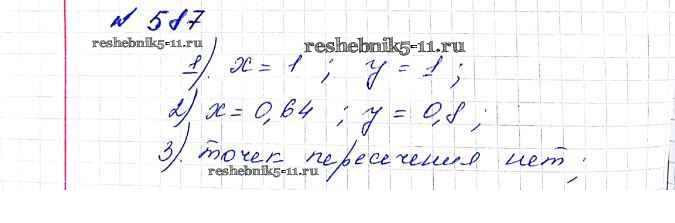 № 587
reshebnik5-11.ru
reshebnik5-11.ru
1). x = 1 ; y = 1 ;
2) x = 0,64 ; y = 0,8 ;
3). точек пересечения нет ;
reshebnik5-11.ru